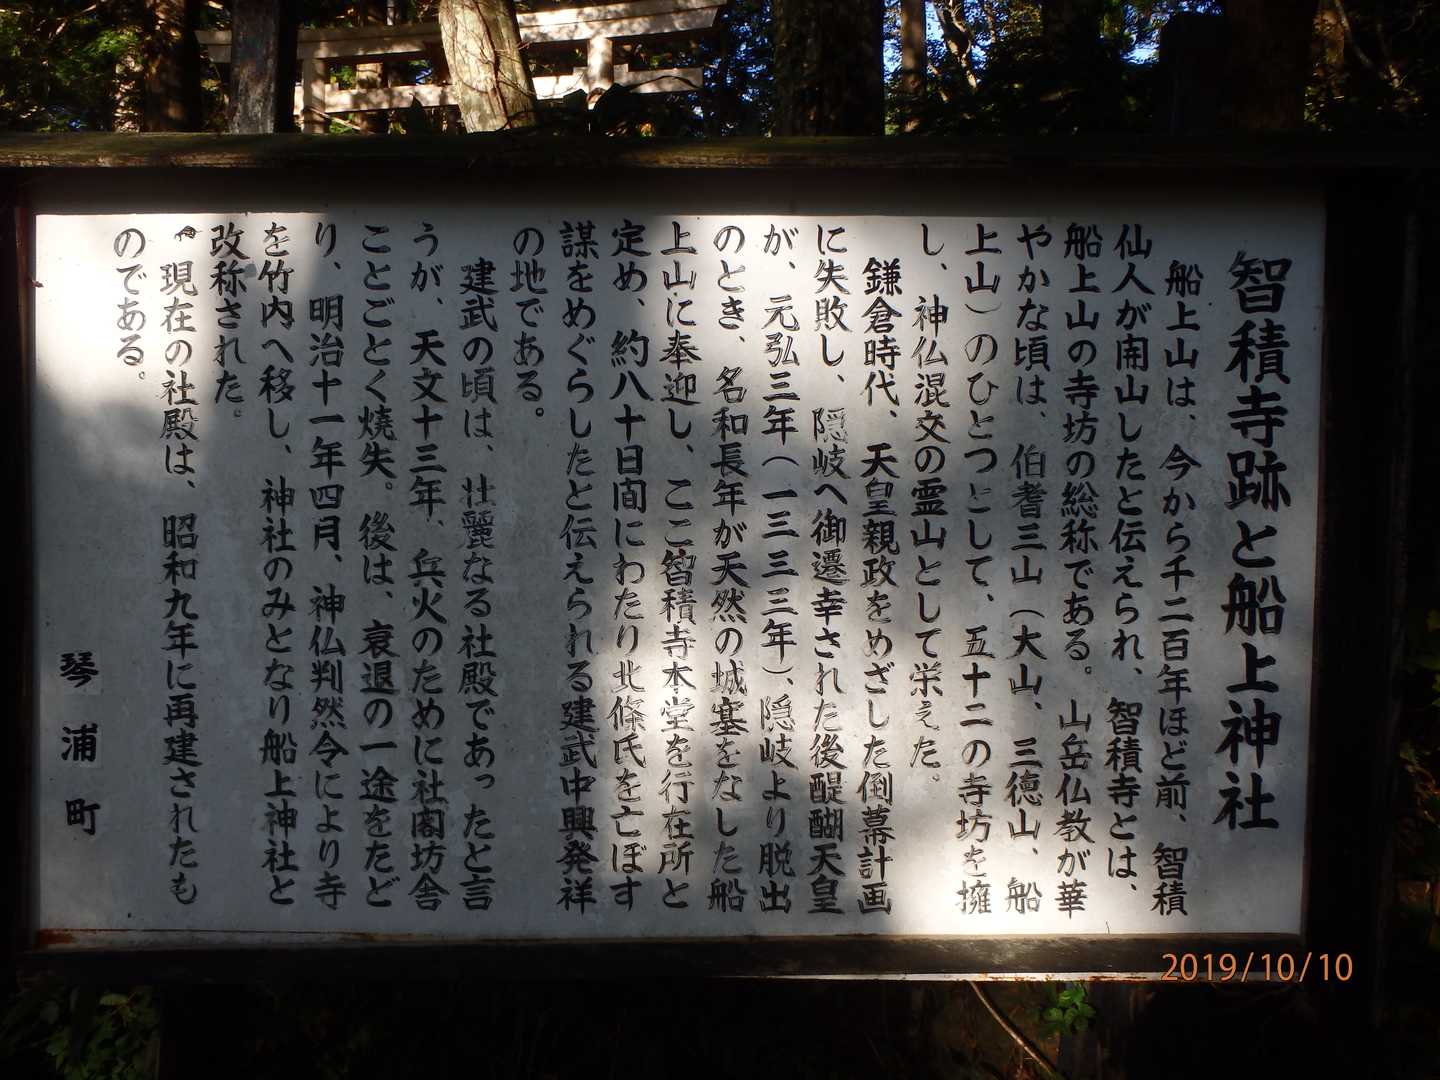 智積寺跡と船上神社
船上山は、今から千二百年ほど前、智積
仙人が開山したと伝えられ、智積寺とは、
船上山の寺坊の総称である。山岳仏教が華
やかな頃は、伯耆三山(大山、三徳山、船
上山)のひとつとして、五十二の寺坊を擁
し、神仏混交の霊山として栄えた。
鎌倉時代、天皇親政をめざした倒幕計画
に失敗し、隠岐へ御遷幸された後醍醐天皇
が、元弘三年(一三三三年)、隠岐より脱出
のとき、名和長年が天然の城塞をなした船
上山に奉迎し、ここ智積寺本堂を行在所と
定め、約八十日間にわたり北條氏を亡ぼす
謀をめぐらしたと伝えられる建武中興発祥
の地である。
建武の頃は、壮麗なる社殿であったと言
うが、天文十三年、兵火のために社閣坊舎
ことごとく焼失。後は、衰退の一途をたど
り、明治十一年四月、神仏判然令により寺
を竹内へ移し、神社のみとなり船上神社と
改称された。
現在の社殿は、昭和九年に再建されたも
のである。
琴浦町
2019/10/10